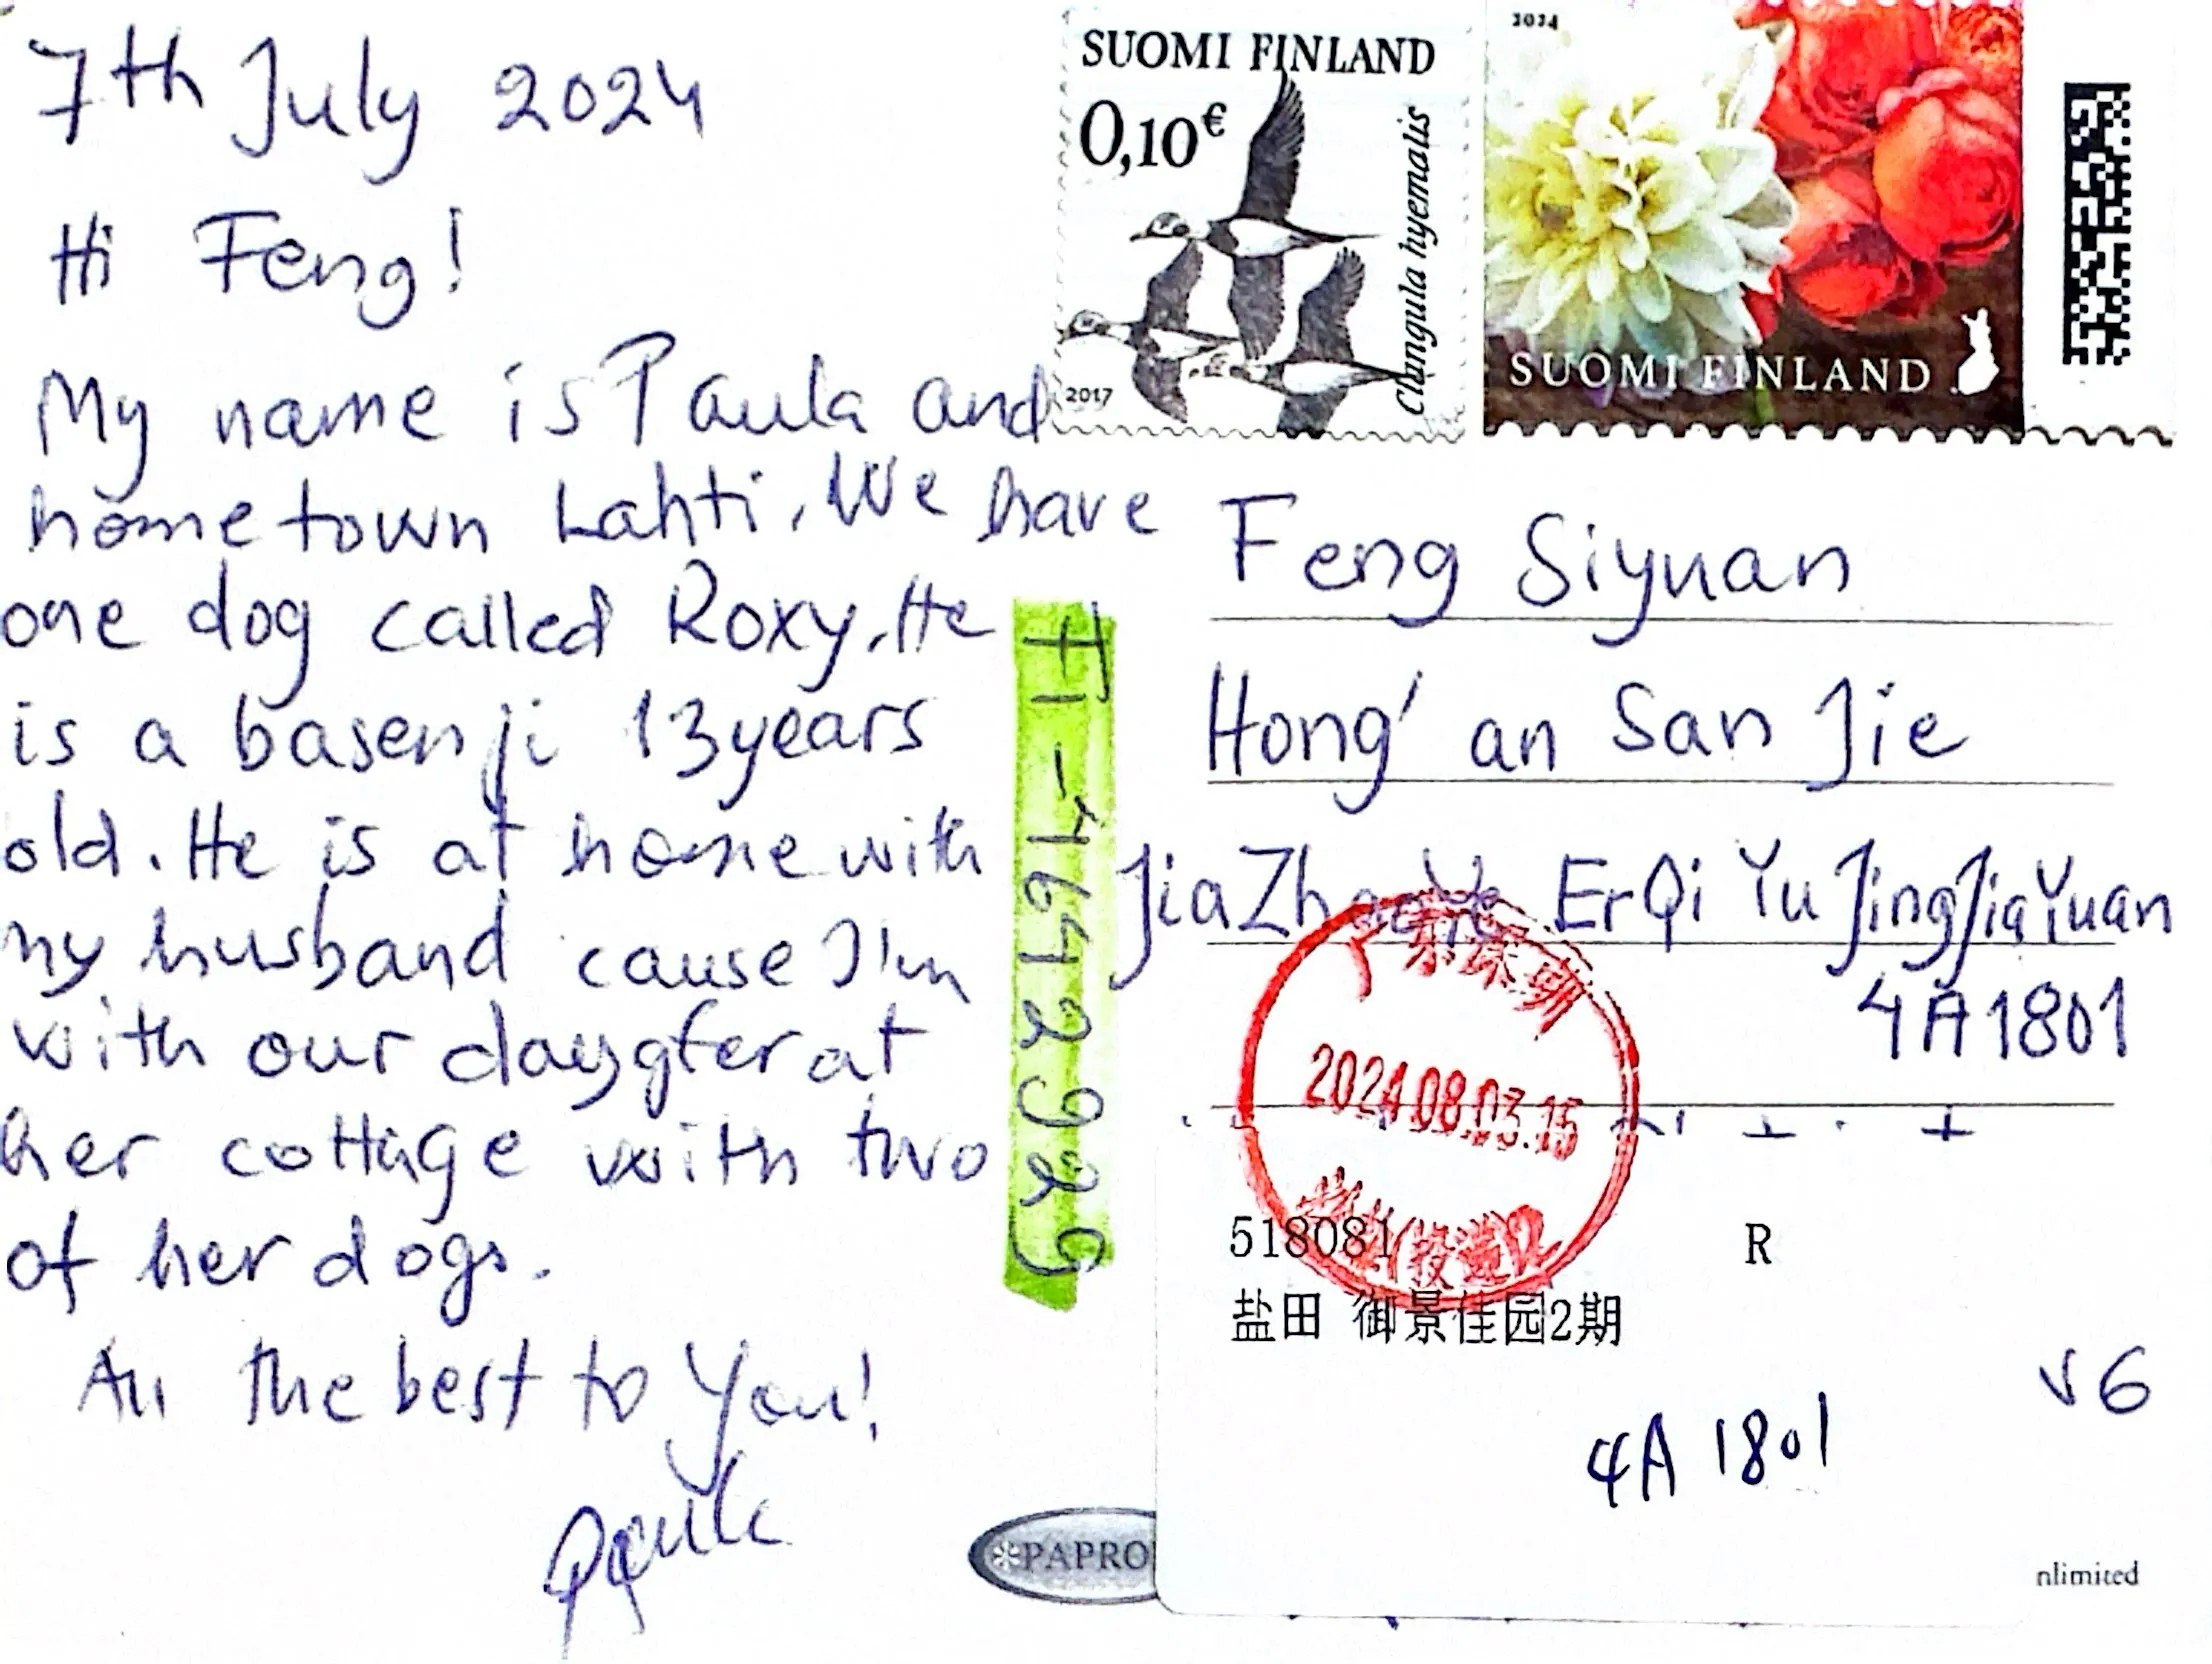 7th July 2024
Hi Feng!
My name is Paula and
hometown Lahti. We have
one dog called Roxy. He
is a basenji 13 years
old. He is at home with
my husband cause I'm
with our daygter at
her cottage with two
of her dogs.
All the best to You!
Paula
SUOMI FINLAND
0,10€
Clangula hyemalis
2017
2024
SUOMI FINLAND
FI-4642929
Feng Siyuan
Hong'an San Jie
ErQi YuJingJiaYuan
4A1801
2024.08.03.15
518081 R
盐田 御景佳园2期
v6
4A 1801
PAPRO
nlimited